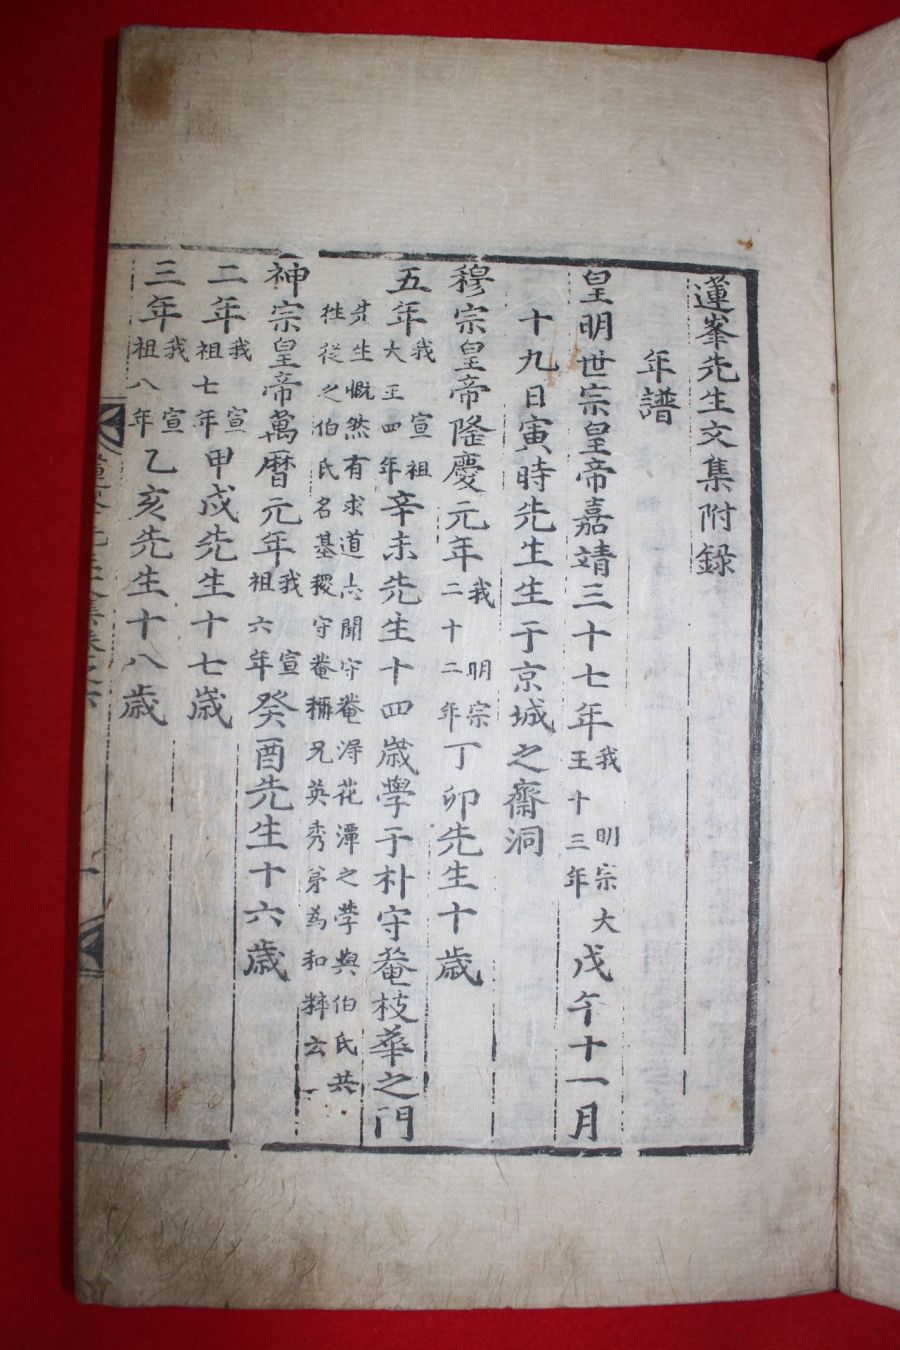 蓮峯先生文集附錄
年譜
皇明世宗皇帝嘉靖三十七年我明宗大王十三年戊午十一月
十九日寅時先生生于京城之齋洞
穆宗皇帝隆慶元年我明宗二十二年丁卯先生十歲
五年我宣祖大王四年辛未先生十四歲學于朴守菴枝華之門
先生慨然有求道心聞守菴得花潭之學與伯氏共
徃從之伯氏名基稷守菴稱兄英秀弟為和粹云
神宗皇帝萬曆元年我宣祖六年癸酉先生十六歲
二年我宣祖七年甲戌先生十七歲
三年我宣祖八年乙亥先生十八歲